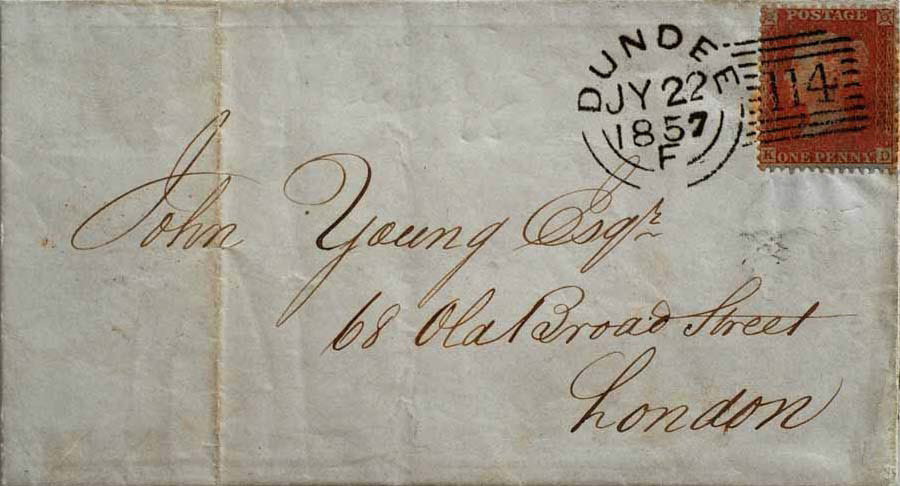 POSTAGE
DUNDEE
JY 22
1857
F
114
K ONE PENNY D
John Young Esqr
68 Old Broad Street
London